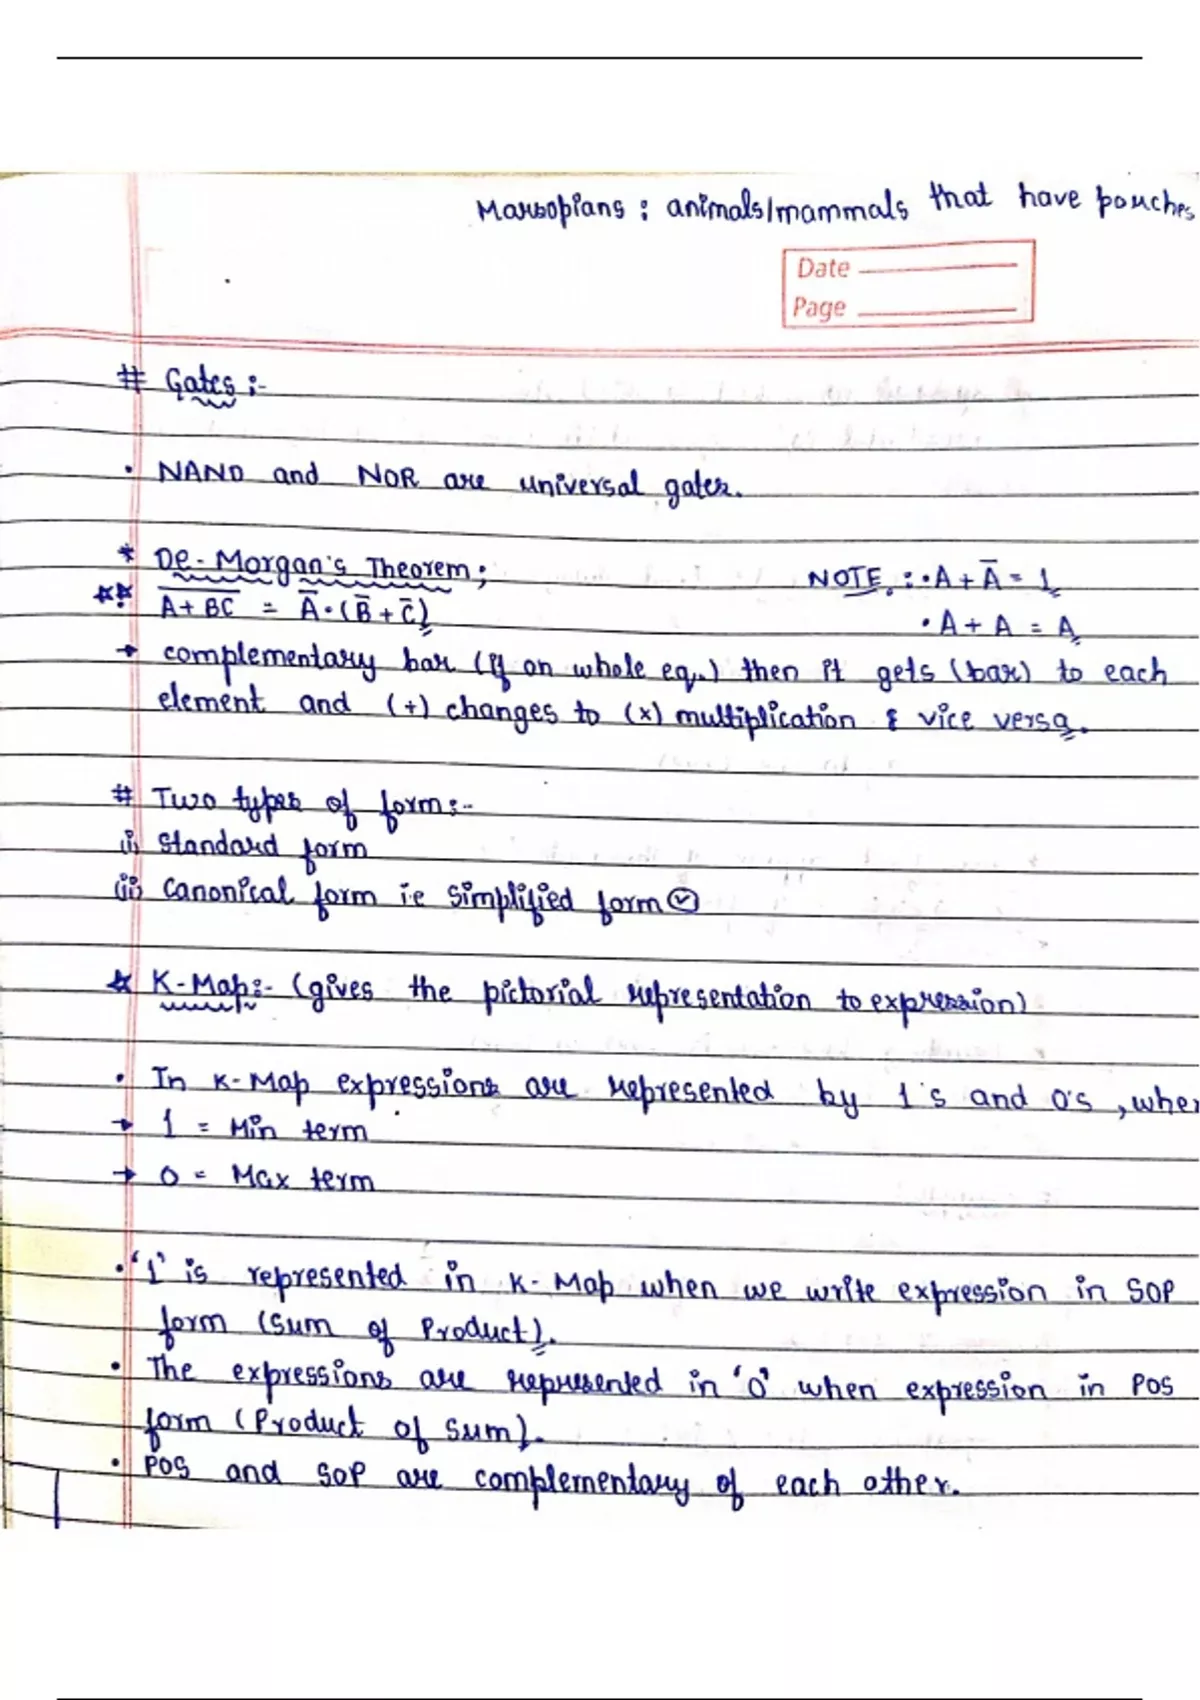 Marsopians : animals/mammals that have pouches
Date
Page
# Gates :-
• NAND and NOR are universal gates.
* De-Morgan's Theorem ;
NOTE : • A + A̅ = 1
** A̅ ̅+̅ ̅B̅C̅ = A̅ • (B̅ + C̅)
• A + A = A
→ complementary bar (if on whole eq.) then it gets (bar) to each
element and (+) changes to (x) multiplication & vice versa.
# Two types of form :-
(i) Standard form
(ii) Canonical form i.e Simplified form
* K-Map :- (gives the pictorial representation to expression)
• In K-Map expressions are represented by 1's and 0's , wher
→ 1 = Min term
→ 0 = Max term
• '1' is represented in K-Map when we write expression in SOP
form (Sum of Product).
• The expressions are represented in '0' when expression in POS
form (Product of Sum).
• POS and SOP are complementary of each other.